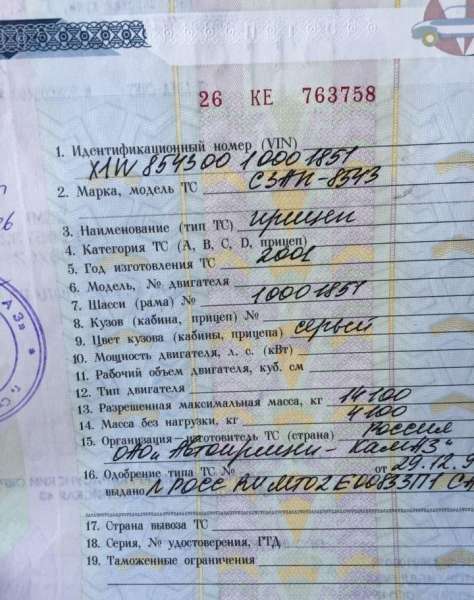 26 КЕ 763758
1. Идентификационный номер (VIN)
X1W 854300 1 0001851
2. Марка, модель ТС СЗАП-8543
3. Наименование (тип ТС) прицеп
4. Категория ТС (А, В, С, D, прицеп)
5. Год изготовления ТС 2001
6. Модель, № двигателя
7. Шасси (рама) № 10001851
8. Кузов (кабина, прицеп) №
9. Цвет кузова (кабины, прицепа) серый
10. Мощность двигателя, л. с. (кВт)
11. Рабочий объем двигателя, куб. см
12. Тип двигателя
13. Разрешенная максимальная масса, кг 14100
14. Масса без нагрузки, кг 4100
15. Организация - изготовитель ТС (страна) Россия
ОАО "Автоприцеп-КамАЗ"
16. Одобрение типа ТС № от 29.12.9
выдано РОСС RU МТ02 Е00833П1
17. Страна вывоза ТС
18. Серия, № удостоверения, ГТД
19. Таможенные ограничения